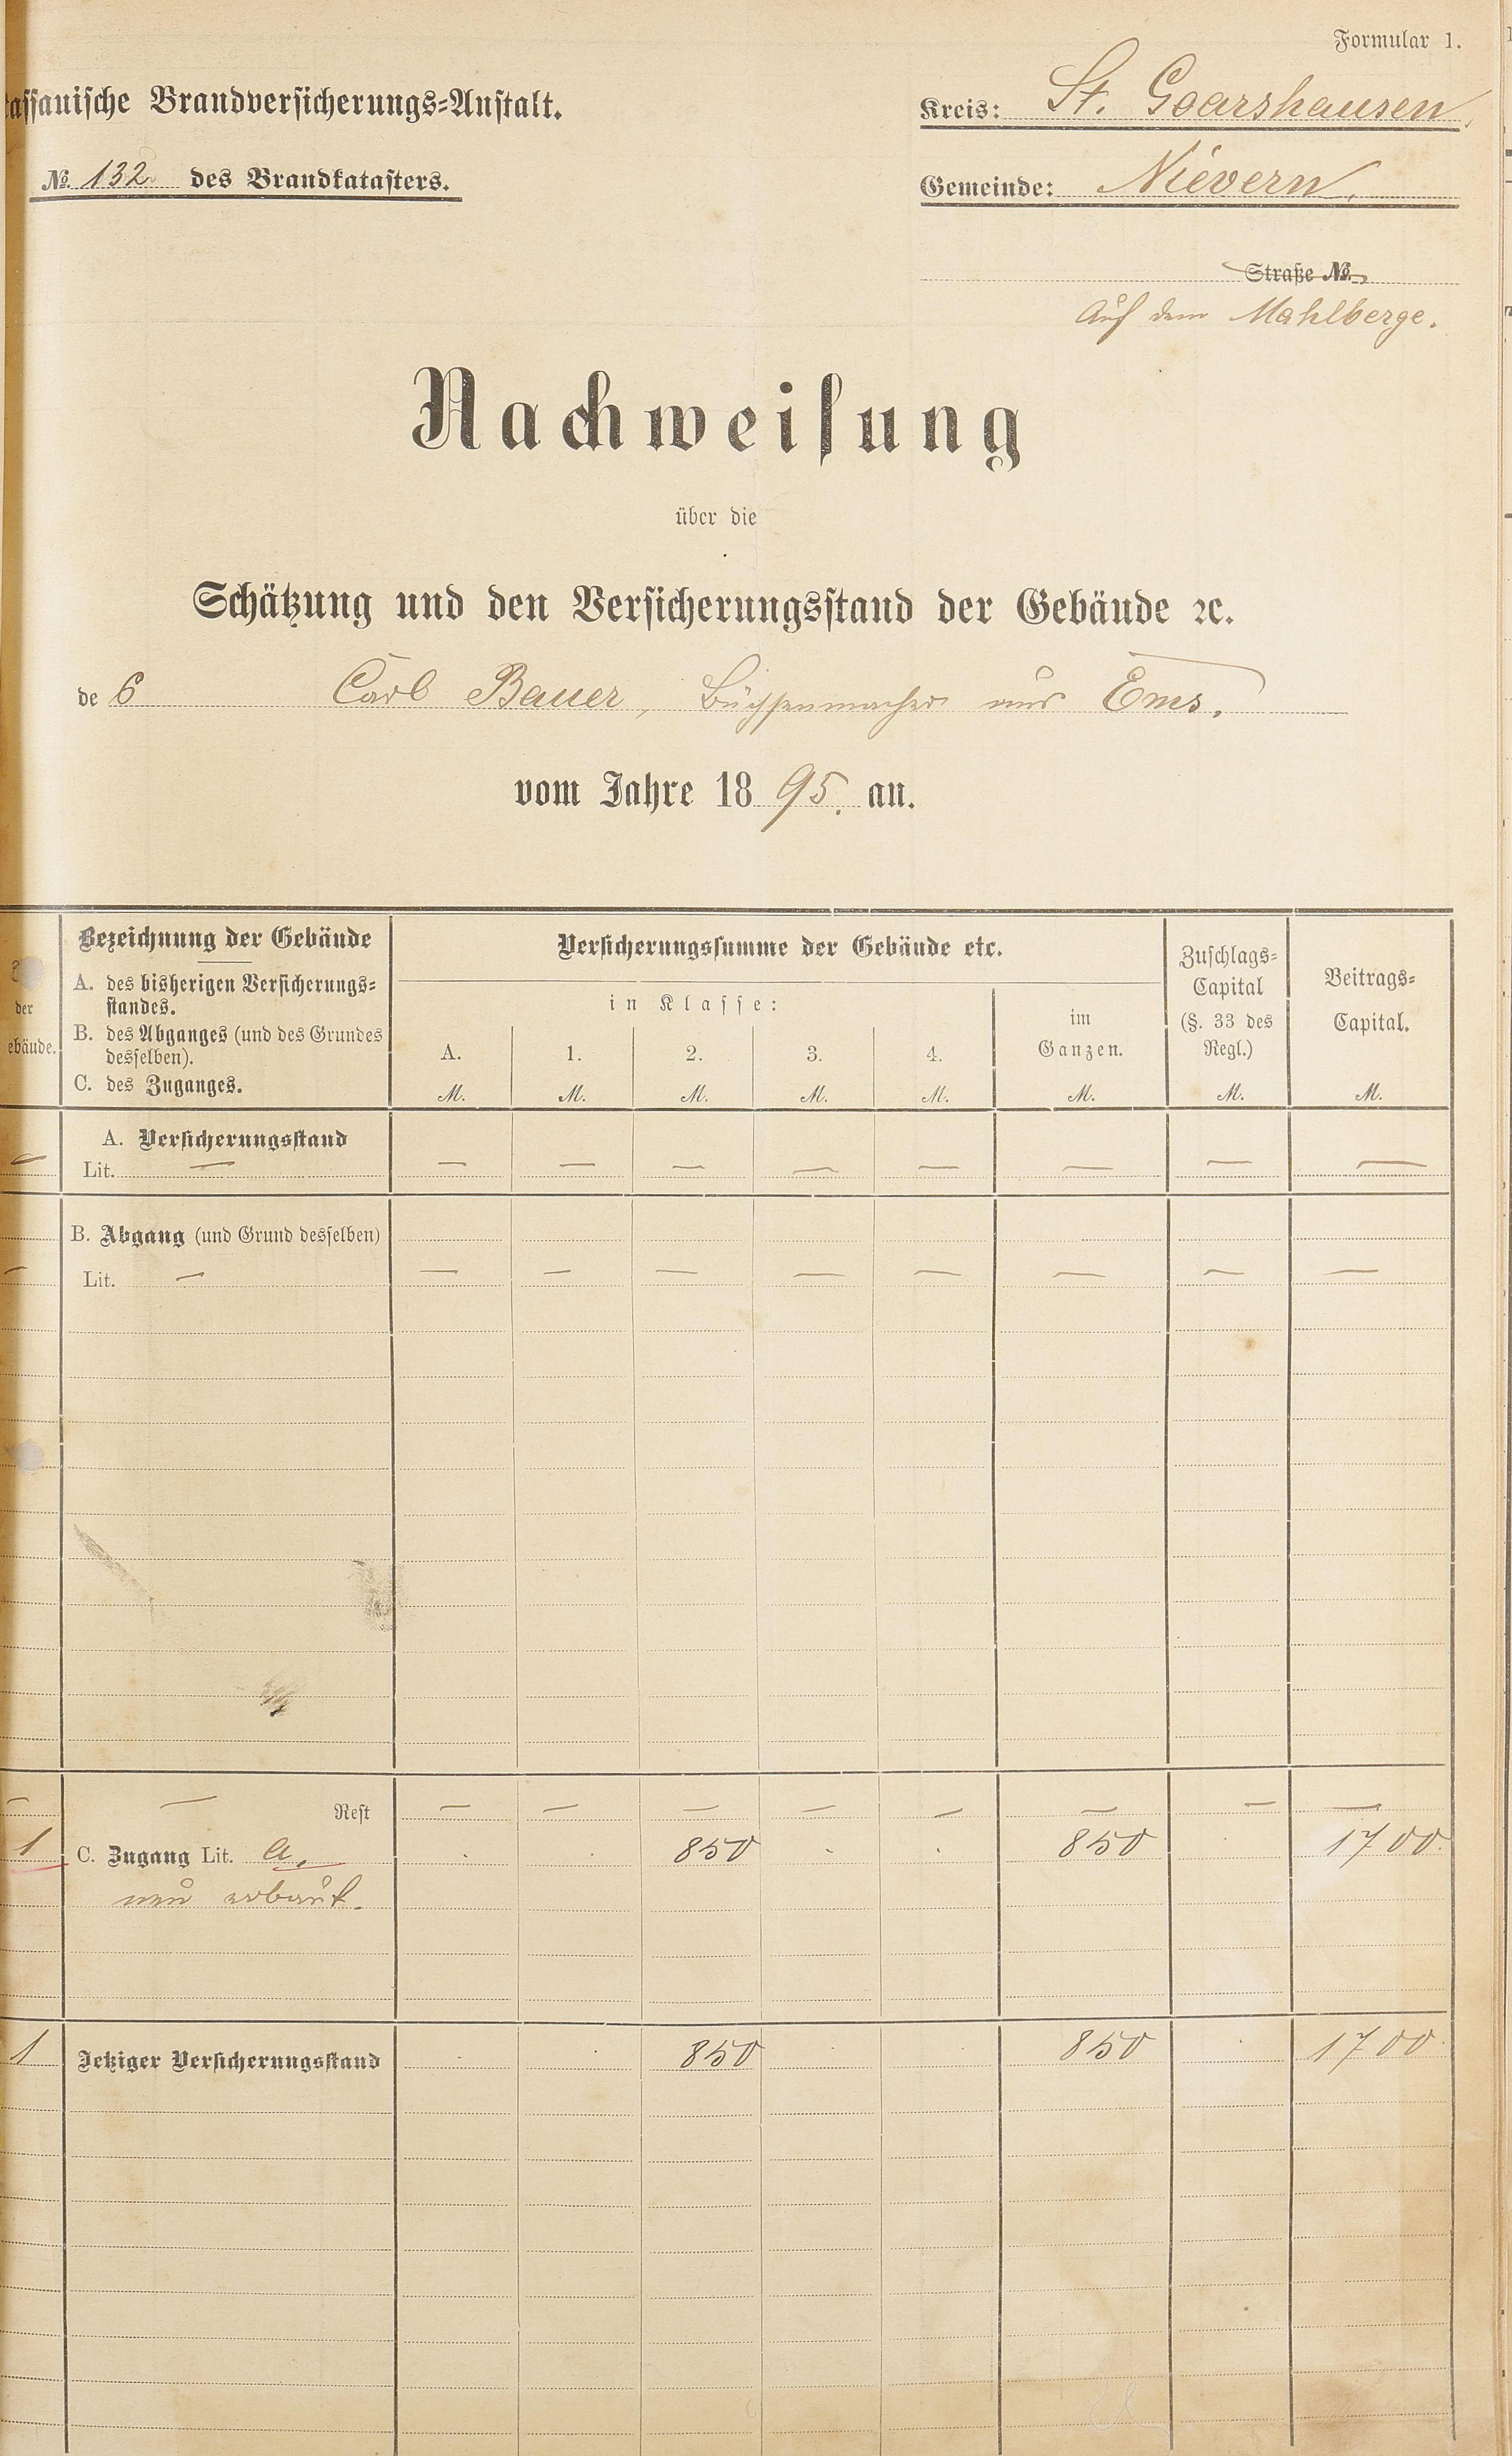 Formular 1.
assauische Brandversicherungs-Anstalt.
Kreis: St. Goarshausen.
No. 132 des Brandkatasters.
Gemeinde: Nievern.
Straße No.
Auf dem Mahlberge.
Nachweisung
über die
Schätzung und den Versicherungsstand der Gebäude ꝛc.
de s Carl Bauer, Büchsenmacher aus Ems.
vom Jahre 1895. an.
der
ebäude.
Bezeichnung der Gebäude
A. des bisherigen Versicherungs-
standes.
B. des Abganges (und des Grundes
desselben).
C. des Zuganges.
Versicherungssumme der Gebäude etc.
in Klasse:
A. 1. 2. 3. 4.
M. M. M. M. M.
im
Ganzen.
M.
Zuschlags-
Capital
(§. 33 des
Regl.)
M.
Beitrags-
Capital.
M.
A. Versicherungsstand
— Lit. — — — — — — — — —
B. Abgang (und Grund desselben)
— Lit. — — — — — — — — —
— — Rest — — — — — — — —
1 C. Zugang Lit. a. . . 850 . . 850 . 1700.
neu erbaut.
1 Jetziger Versicherungsstand . . 850 . . 850 . 1700.